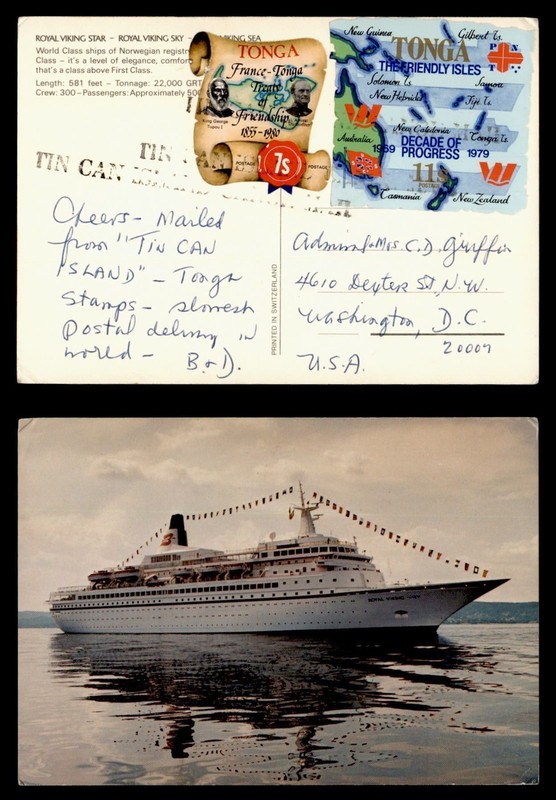 ROYAL VIKING STAR – ROYAL VIKING SKY – VIKING SEA
World Class ships of Norwegian registr
Class – it's a level of elegance, comfor
that's a class above First Class.
Length: 581 feet – Tonnage: 22,000 GRT
Crew: 300 – Passengers: Approximately 500
TONGA
France-Tonga
Treaty
of
Friendship
1855-1980
King George
Tupou I
7s
POSTAGE
POSTAGE
New Guinea
Gilbert Is.
TONGA
THE FRIENDLY ISLES
Solomon Is
Samoa
New Hebrides
Fiji Is
New Caledonia
Tonga Is
Australia
1969 DECADE OF PROGRESS 1979
11s
POSTAGE
Tasmania
New Zealand
TIN CAN
TIN CAN ISL
Cheers – Mailed
from "TIN CAN
ISLAND" – Tonga
Stamps – slowest
postal delivery in
world – B+D.
PRINTED IN SWITZERLAND
Admiral+Mrs. C.D. Griffin
4610 Dexter St, N.W.
Washington, D.C.
20007
U.S.A.
ROYAL VIKING